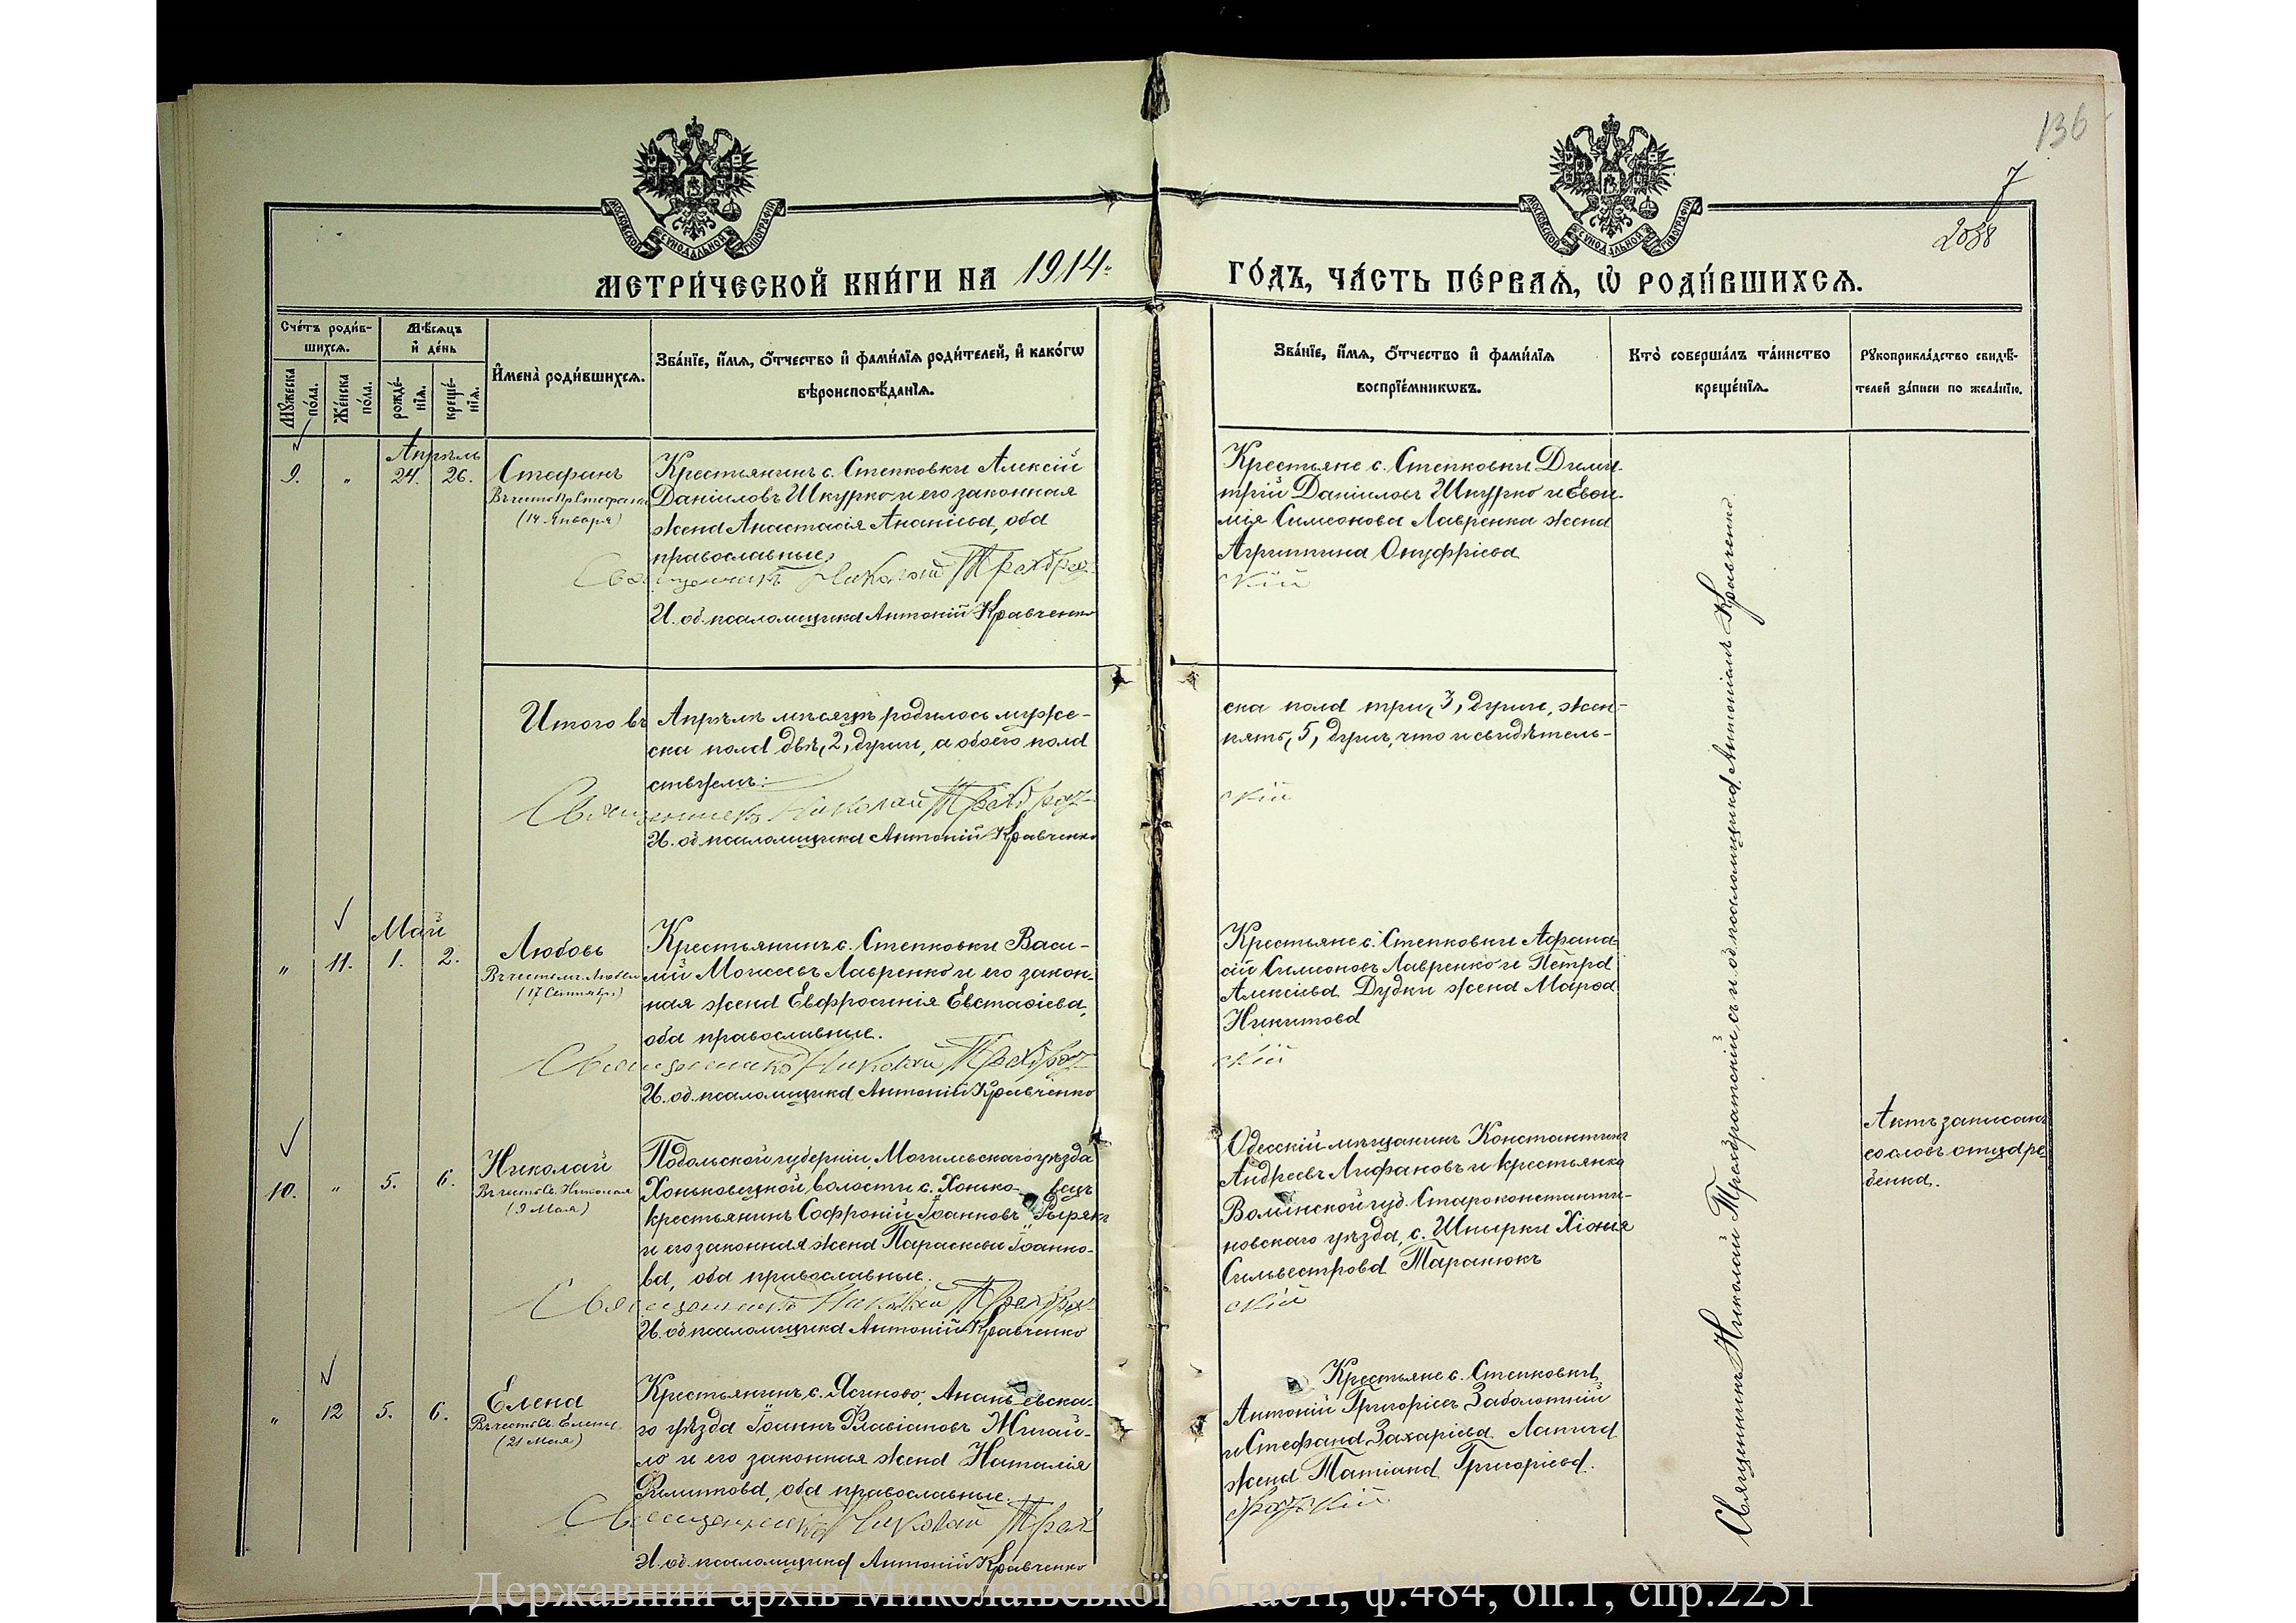 136
7
2088
МОСКОВСКОЙ СѴНОДАЛЬНОЙ ТИПОГРАФІИ
МОСКОВСКОЙ СѴНОДАЛЬНОЙ ТИПОГРАФІИ
МЕТРИ́ЧЕСКОЙ КНИ́ГИ НА 1914.
ГО́ДЪ, ЧА́СТЬ ПЕ́РВАѦ, Ѡ҆ РОДИ́ВШИХСѦ.
Сче́тъ роди́в-
шихсѧ.
Мꙋ́жеска по́ла.
Же́нска по́ла.
Мѣ́сѧцъ
и҆ де́нь
рожде́-
нїѧ.
креще́-
нїѧ.
И҆мена̀ роди́вшихсѧ.
Зва́нїе, и҆́мѧ, ѻ҆́тчество и҆ фами́лїѧ роди́телей, и҆ како́гѡ
вѣроисповѣ́данїѧ.
Зва́нїе, и҆́мѧ, ѻ҆́тчество и҆ фами́лїѧ
воспрїе́мникѡвъ.
Кто̀ соверша́лъ та́инство
креще́нїѧ.
Рꙋкоприкла́дство свидѣ́-
телей за́писи по жела́нїю.
Апрѣль
9. " 24. 26. Стефанъ
Въ честь Пр. Стефана
(14 Января)
Крестьянинъ с. Степковки Алексій
Даніиловъ Шкурко и его законная
жена Анастасія Ананіева, оба
православные
Священникъ Николай Трахдрат-
И. об. псаломщика Антоній Кравченко
Крестьяне с. Степковки Дими-
трій Даніиловъ Шкурко и Евѳи-
мія Симеонова Лавренка жена
Агриппина Онуфріева
скій
Итого въ Апрѣлѣ мѣсяцѣ родилось муже-
ска пола двѣ, 2, души, а обоего пола
ствуемъ:
Священникъ Николай Трахдрат-
И. об. псаломщика Антоній Кравченко
ска пола три, 3, души, жен-
пять, 5, душъ, что и свидѣтель-
скій
Май
" 11. 1. 2. Любовь
Въ честь мч. Любви
(17 Сентябр.)
Крестьянинъ с. Степковки Васи-
лій Моисеевъ Лавренко и его закон-
ная жена Евфросинія Евстаѳіева,
оба православные.
Священникъ Николай Трахдрат-
И. об. псаломщика Антоній Кравченко
Крестьяне с. Степковки Аѳана-
сій Симеоновъ Лавренко и Петра
Алексіева Дудки жена Марѳа
Никитова
скій
10. " 5. 6. Николай
Въ честь Св. Николая
(9 Мая)
Подольской губерніи, Могилевскаго уѣзда
Хоньковецкой волости с. Хонько- вецъ
крестьянинъ Софроній Іоанновъ
и его законная жена Параскева Іоанно-
ва, оба православные.
Священникъ Николай Трахдрат-
И. об. псаломщика Антоній Кравченко
Одесскій мѣщанинъ Константинъ
Андреевъ Лифановъ и крестьянка
Волынской губ. Староконстанти-
новскаго уѣзда, с. Шпырки Хіонія
Сильвестрова Таранюкъ
скій
Актъ записанъ
со словъ отца ре-
бенка.
" 12 5. 6. Елена
Въ честь Св. Елены
(21 Мая)
Крестьянинъ с. Ясиново, Ананьевска-
го уѣзда Іоаннъ Флавіановъ Жигай-
ло и его законная жена Наталія
Филиппова, оба православные.
Священникъ Николай Трах
И. об. псаломщика Антоній Кравченко
Крестьяне с. Степковки
Антоній Григоріевъ Заболотній
и Стефана Захаріева Лапича
жена Татіана Григоріева.
дратскій
Священникъ Николай Трахдратскій съ и об. псаломщика Антоніемъ Кравченко
Державний архів Миколаївської області, ф.484, оп.1, спр.2251